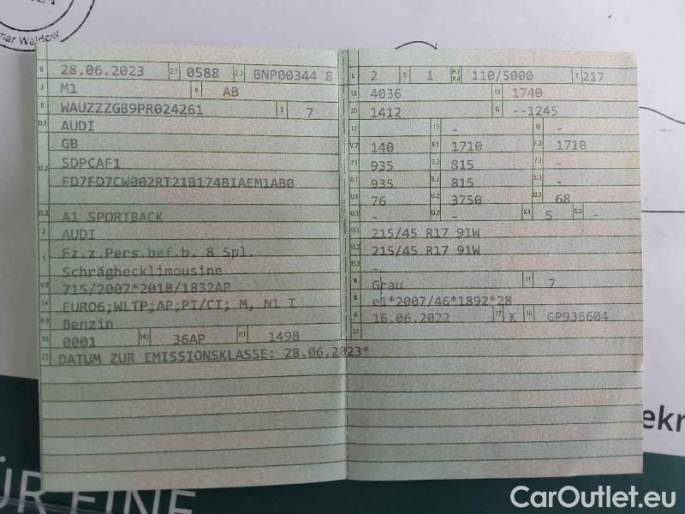 nar Waldow
B 28.06.2023 2.1 0588 2.2 BNP00344 8
J M1 4 AB
E WAUZZZGB9PR024261 3 7
D.1 AUDI
GB
D.2 SDPCAF1
FD7FD7CW002RT21B174BIAEM1AB0
D.3 A1 SPORTBACK
2 AUDI
5 Fz.z.Pers.bef.b. 8 Spl.
Schräghecklimousine
V.9 715/2007*2018/1832AP
14 EURO6;WLTP;AP;PI/CI; M, N1 I
P.3 Benzin
10 0001 14.1 36AP P.1 1498
22 DATUM ZUR EMISSIONSKLASSE: 28.06.2023*
L 2 9 1 P.2 P.4 110/5000 T 217
18 4036 19 1740
20 1412 G --1245
12 - 13 - Q -
V.7 140 F.1 1710 F.2 1710
7.1 935 7.2 815 7.3 -
8.1 935 8.2 815 8.3 -
U.1 76 U.2 3750 U.3 68
O.1 - O.2 - S.1 5 S.2 -
15.1 215/45 R17 91W
15.2 215/45 R17 91W
15.3 -
R Grau 11 7
K e1*2007/46*1892*28
6 16.06.2022 17 K 16 GP936604
21
ekr
ÜR EINE
CarOutlet.eu